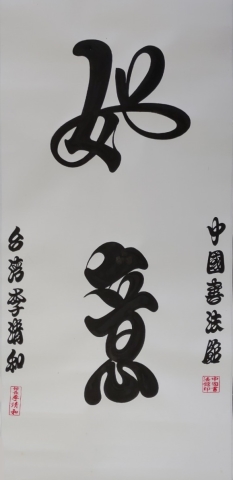 中國書法館
如意
台灣李清和